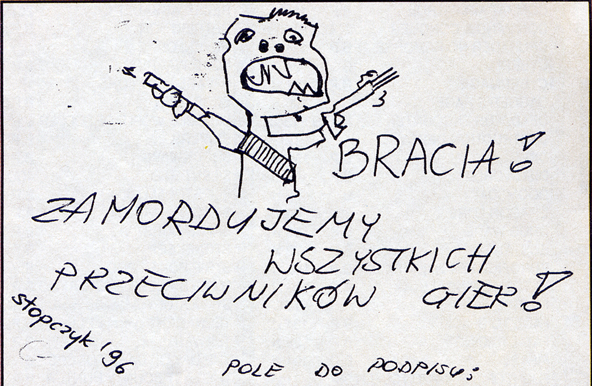 BRACIA!
ZAMORDUJEMY
WSZYSTKICH
PRZECIWNIKÓW GIER!
stopczyk '96
POLE DO PODPISU: